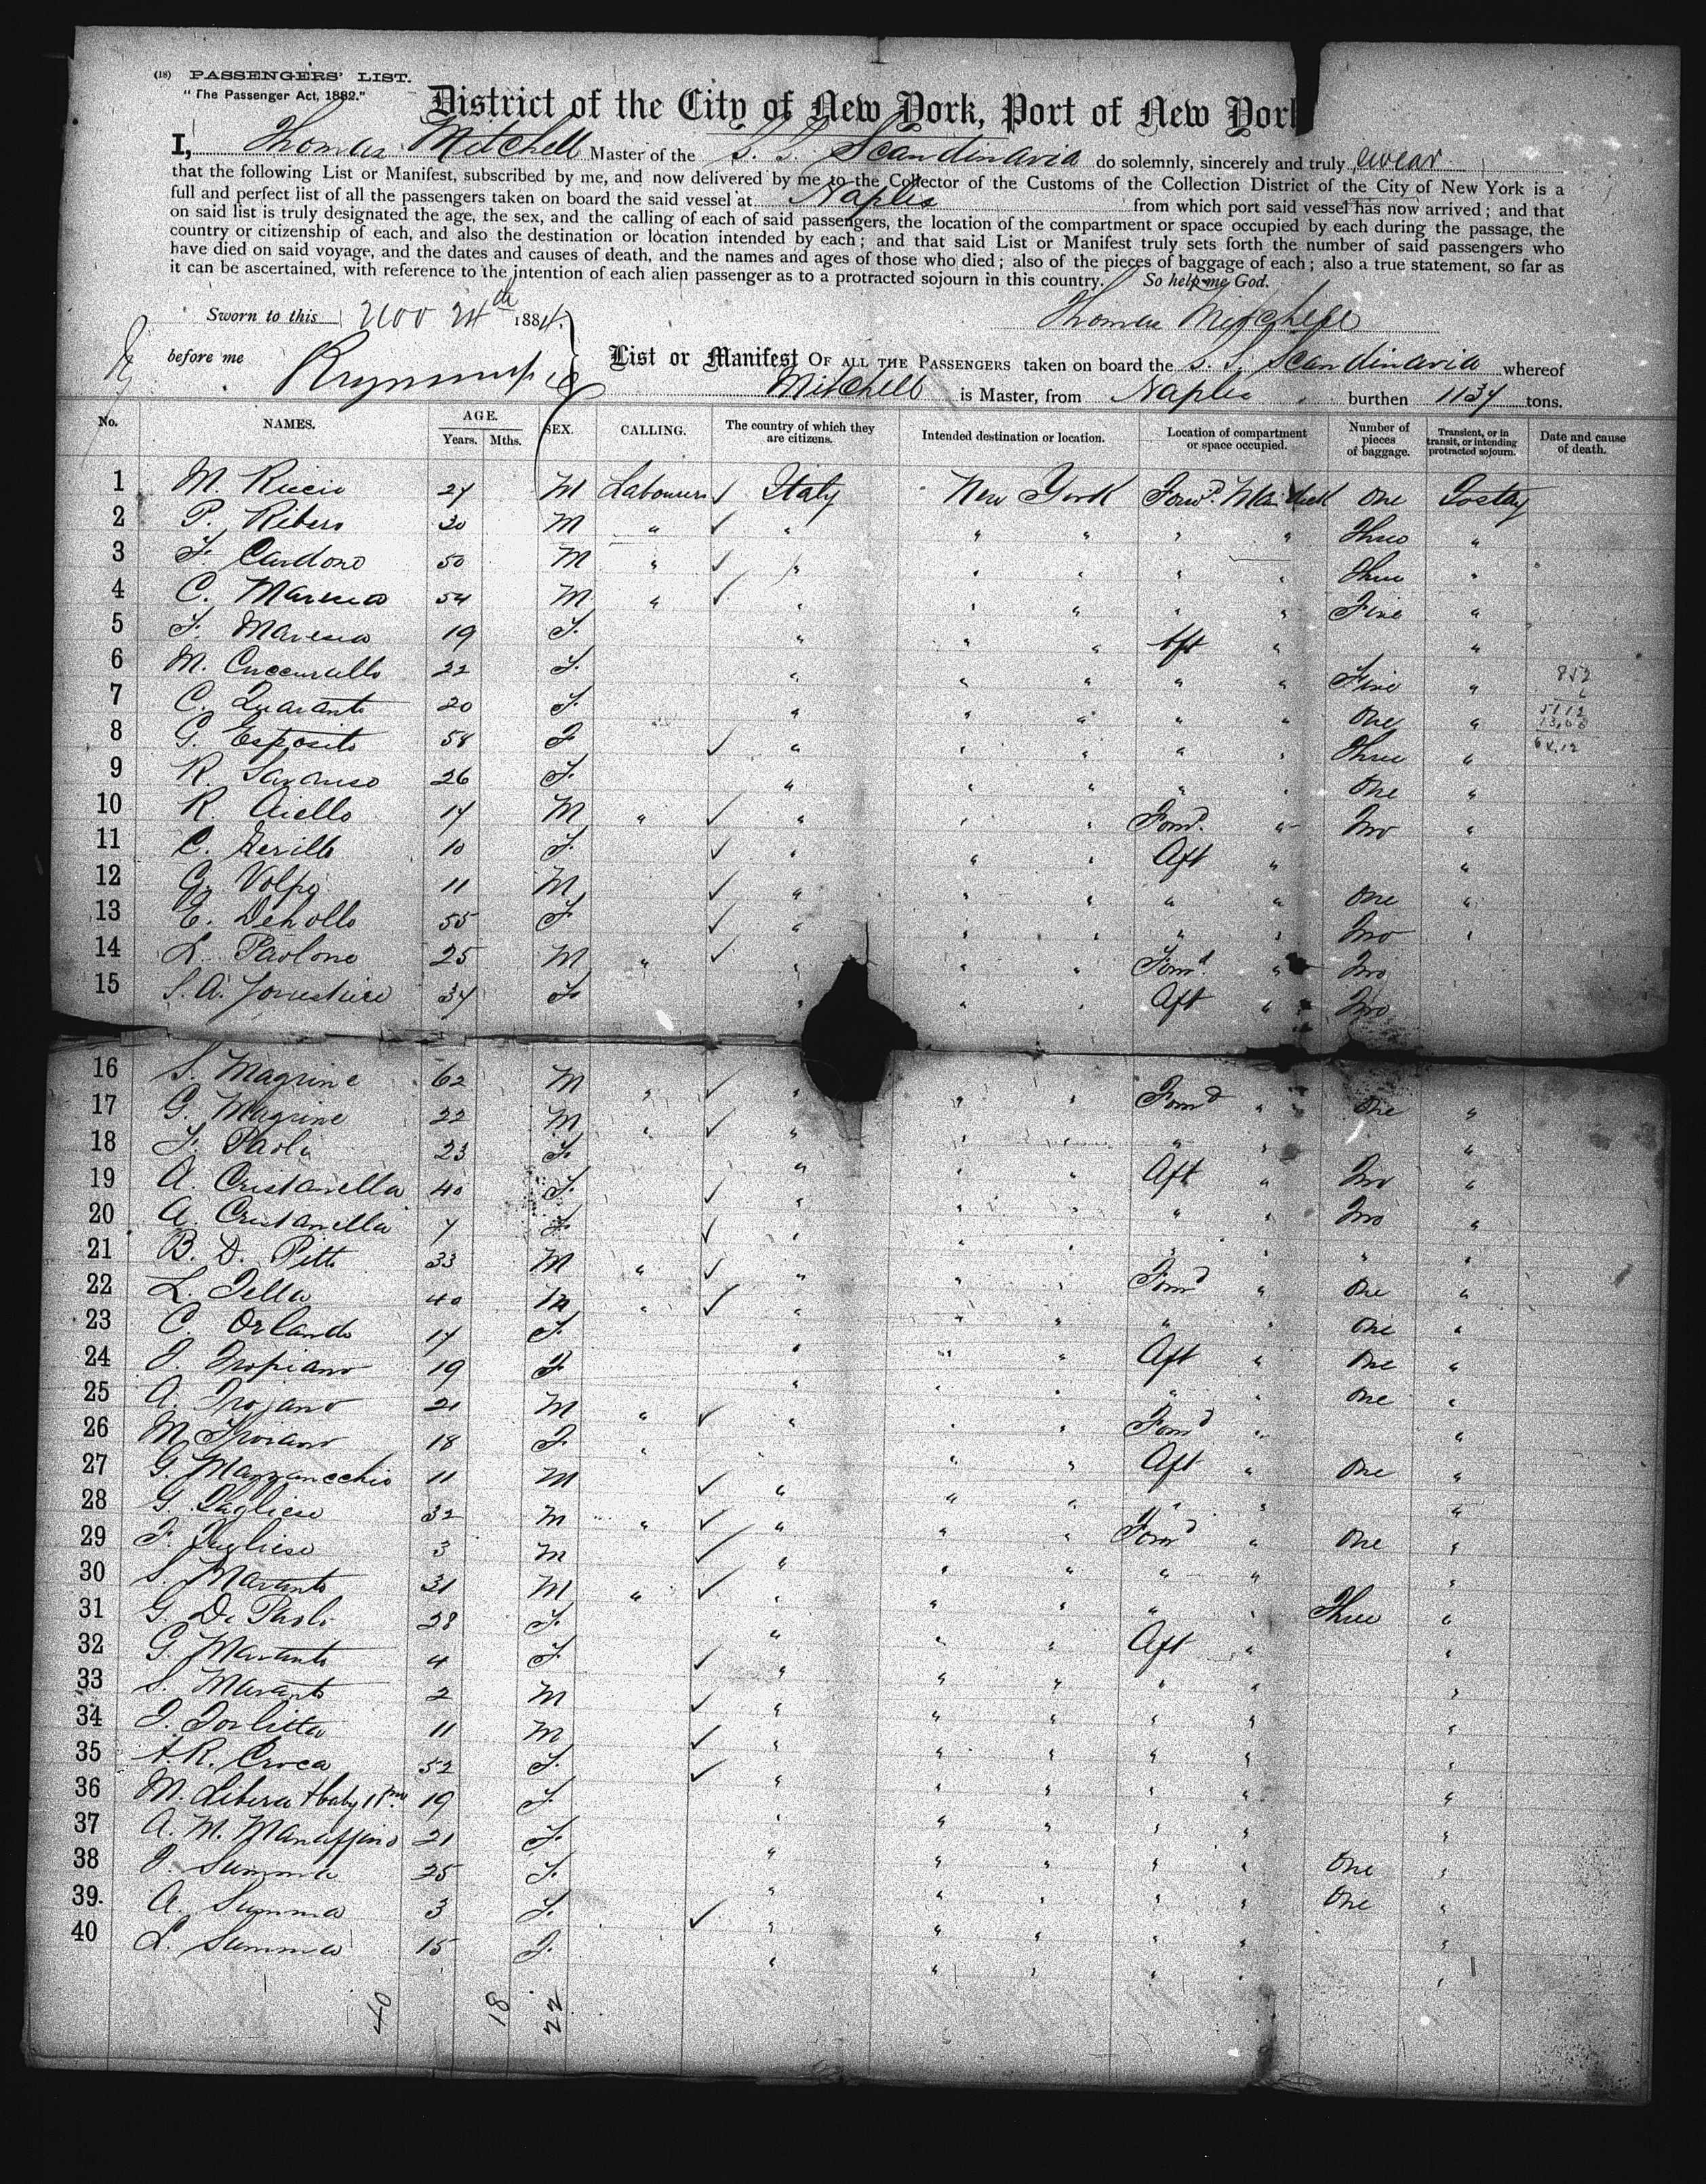 (18) PASSENGERS' LIST.
"The Passenger Act, 1882."
District of the City of New York, Port of New York
I, Thomas Mitchell Master of the S. S. Scandinavia do solemnly, sincerely and truly swear
that the following List or Manifest, subscribed by me, and now delivered by me to the Collector of the Customs of the Collection District of the City of New York is a
full and perfect list of all the passengers taken on board the said vessel at Naples from which port said vessel has now arrived; and that
on said list is truly designated the age, the sex, and the calling of each of said passengers, the location of the compartment or space occupied by each during the passage, the
country or citizenship of each, and also the destination or location intended by each; and that said List or Manifest truly sets forth the number of said passengers who
have died on said voyage, and the dates and causes of death, and the names and ages of those who died; also of the pieces of baggage of each; also a true statement, so far as
it can be ascertained, with reference to the intention of each alien passenger as to a protracted sojourn in this country. So help me God.
Sworn to this Nov 24th 1884. Thomas Mitchell
before me
List or Manifest OF ALL THE PASSENGERS taken on board the S. S. Scandinavia whereof
Mitchell is Master, from Naples burthen 1134 tons.
No. NAMES. AGE. Years. Mths. SEX. CALLING. The country of which they are citizens. Intended destination or location. Location of compartment or space occupied. Number of pieces of baggage. Transient, or in transit, or intending protracted sojourn. Date and cause of death.
1 M. Riccio 24 M Labourers ✓ Italy New York Forwd. Main deck One To stay
2 P. Ribero 30 M " ✓ " " " " " Three "
3 F. Cardono 50 M " ✓ " " " " " Three "
4 C. Maresca 54 M " ✓ " " " " " Five "
5 F. Maresca 19 F. " " " Aft " "
6 M. Cuccurullo 22 F. " " " " " Five "
7 C. Quaranto 20 F. " " " " " One "
8 G. Esposito 58 F ✓ " " " " " Three "
9 R. 26 F. " " " " " One "
10 R. Aiello 14 M " ✓ " " " Forwd. " Two "
11 C. 10 F. ✓ " " " Aft " "
12 G. Volpe 11 M ✓ " " " " " One "
13 E. 55 F ✓ " " " " " Two "
14 L. Paolono 25 M " ✓ " " " Forwd. " Two
15 S. A. 34 F " " " Aft " Two
16 S. Magrine 62 M " ✓ " " " Forwd " One "
17 G. Magrine 22 M " ✓ " " " " " "
18 F. Paola 23 F. " " " Aft " Two "
19 A. Cristanella 40 F. ✓ " " " " " Two "
20 A. Cristanella 7 F. ✓ " " " " " " "
21 B. D. Petto 33 M " ✓ " " " Forwd " One "
22 L. Tella 40 M " ✓ " " " " " One "
23 C. Orlando 17 F. " " " Aft " One "
24 J. Tropiano 19 F " " " " " One "
25 A. Trojano 21 M " ✓ " " " Forwd " "
26 M. 18 F " " " Aft " One "
27 G. Mazzanecchio 11 M ✓ " " " " " "
28 G. Pugliese 32 M " ✓ " " " Forwd " One "
29 F. Pugliese 3 M ✓ " " " " " "
30 S. Maranto 31 M " ✓ " " " " " Three "
31 G. De Paoli 28 F. " " " Aft " "
32 G. Maranto 4 F. ✓ " " " " " "
33 S. Maranto 2 M ✓ " " " " " "
34 J. 11 M ✓ " " " " " "
35 A. R. Croca 52 F. ✓ " " " " " "
36 M. Libera & baby 19 F. " " " " " "
37 A. M. 21 F. " " " " " One "
38 J. Summa 25 F. " " " " " One "
39. A. Summa 3 F. ✓ " " " " " "
40 L. Summa 15 F. " " " " " "
40 18 22